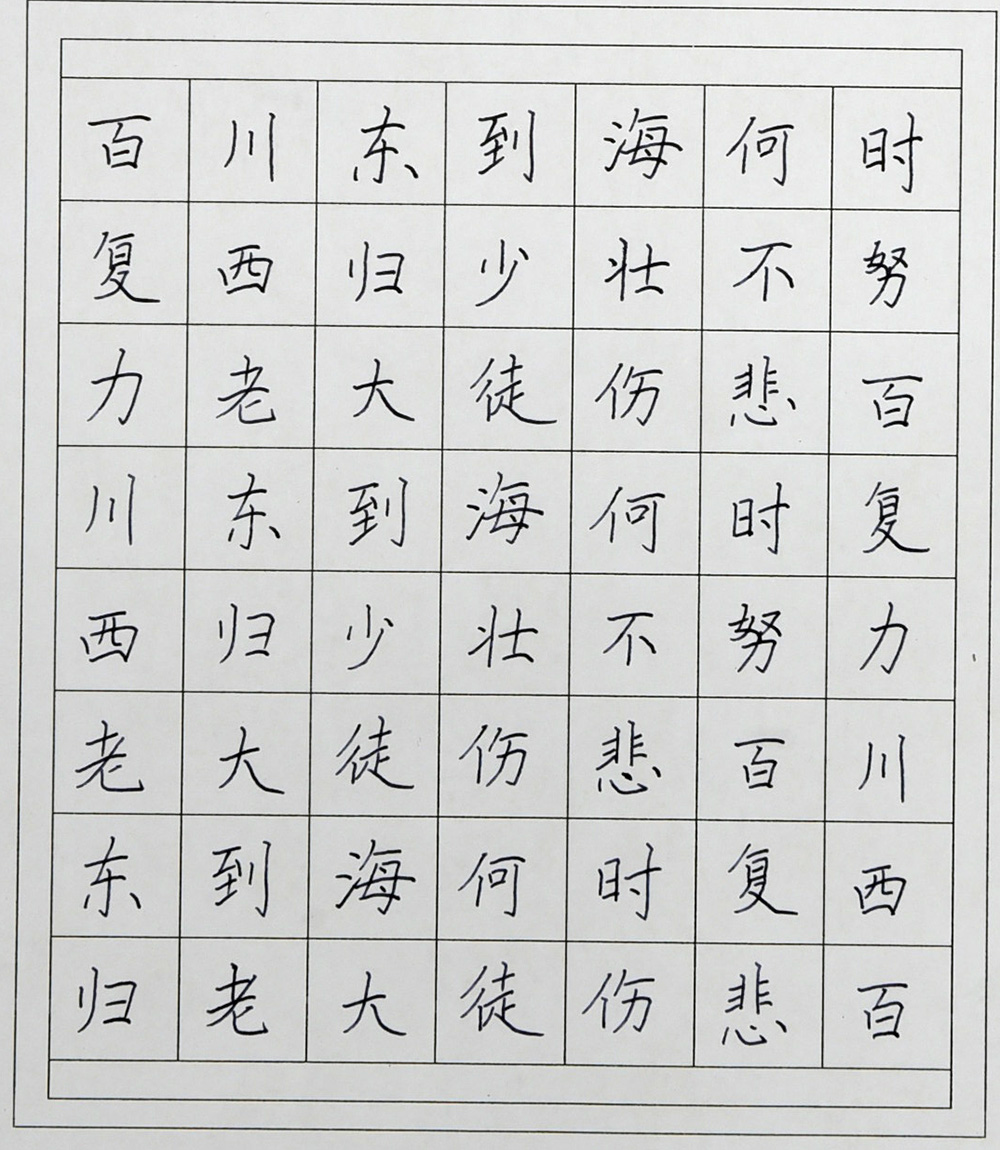 百川东到海何时
复西归少壮不努
力老大徒伤悲百
川东到海何时复
西归少壮不努力
老大徒伤悲百川
东到海何时复西
归老大徒伤悲百